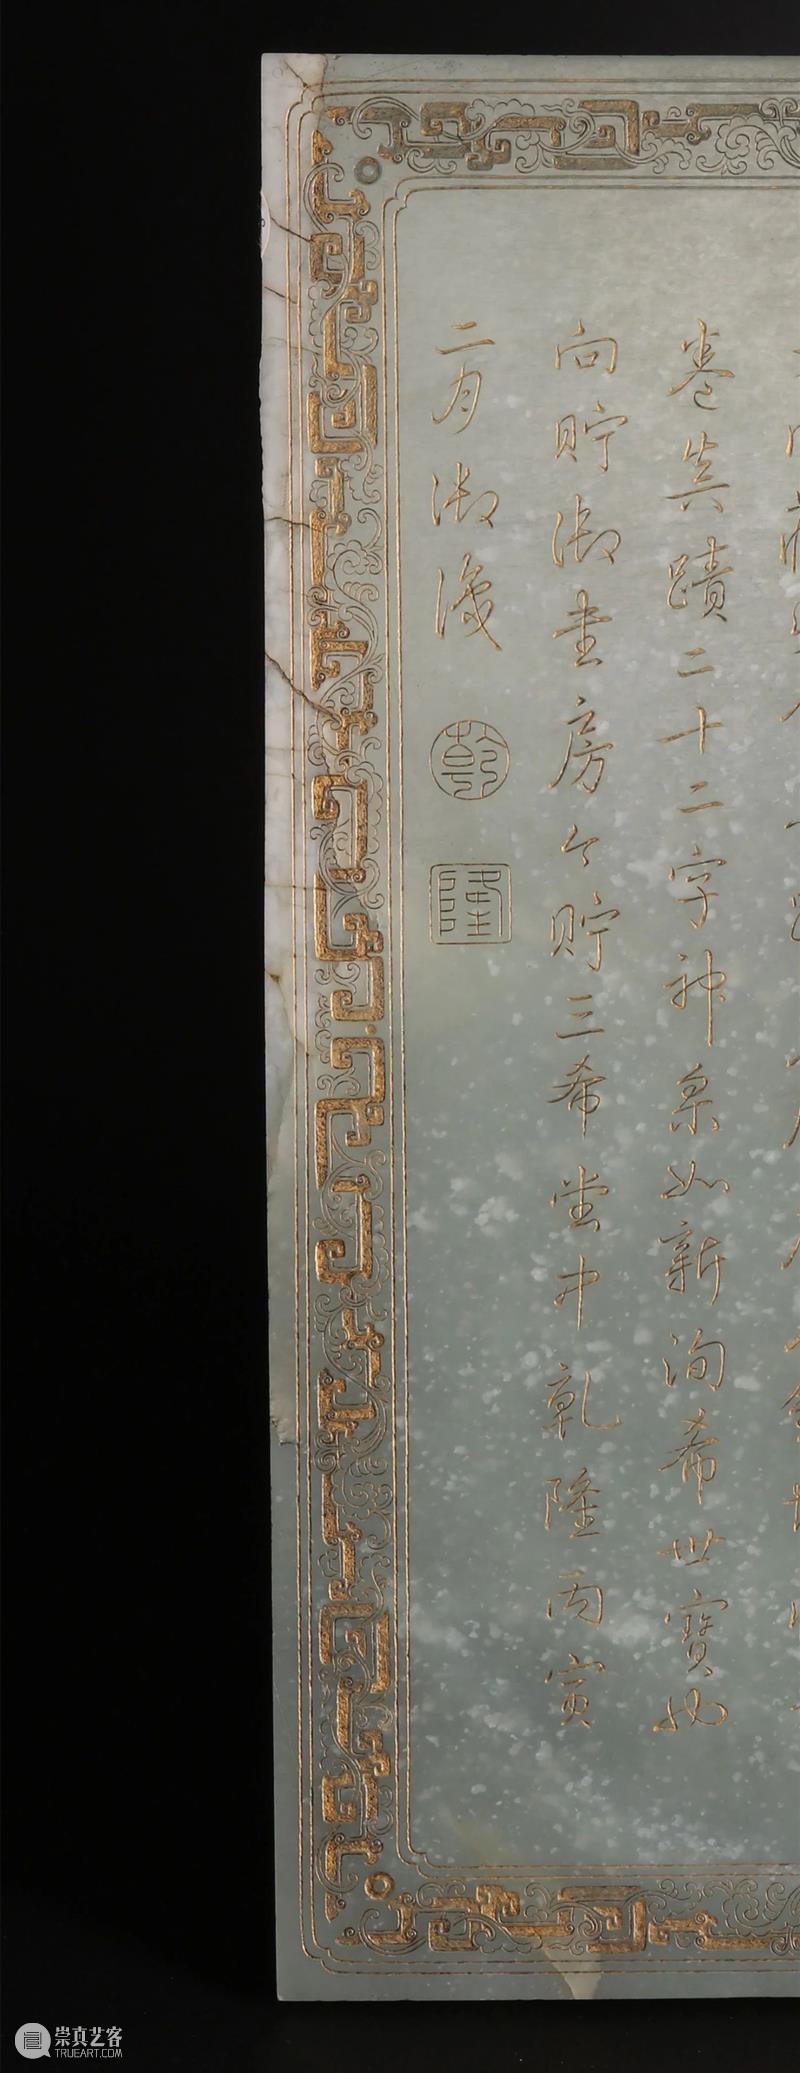 卷真蹟二十二字神采如新洵希世寶也
向貯御書房今貯三希堂中乾隆丙寅
二月御識
乾
隆
崇真艺客
TRUEART.COM